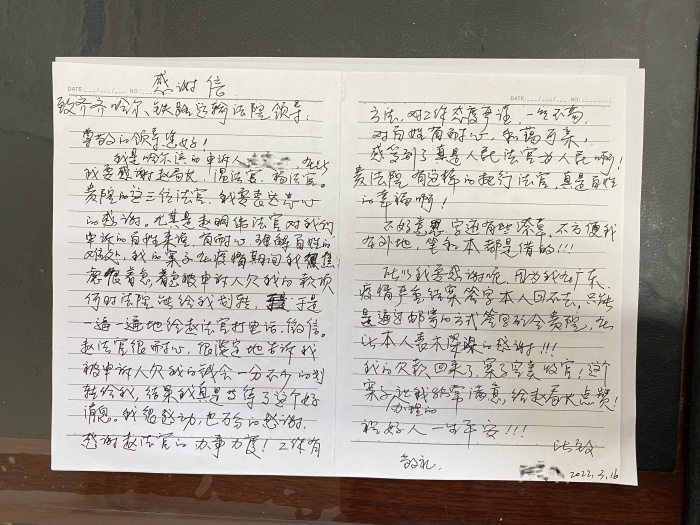 感谢信
DATE: / / NO:
致齐齐哈尔铁路运输法院领导:
尊敬的领导您好!
我是哈尔滨的申诉人 在此
我要感谢赵局长、温法官、杨法官。
贵院的这三位法官,我要表达衷心
的感谢。尤其是赵明伟法官对我们
申诉的百姓来说,有耐心,理解百姓的
难处,我的案子在疫情期间我
很着急,着急被申诉人欠我的款项
何时法院能给我划转,于是
一遍一遍地给赵法官打电话,微信。
赵法官很耐心,很坚定地告诉我
被申诉人欠我的钱会一分不少的划
转给我,结果我真是等了这个好
消息。我很感动,也万分的感谢,
感谢赵法官的办事力度!工作有
DATE: / / NO:
方法,对工作态度严谨,一丝不苟
对百姓有耐心,和蔼可亲,
感觉到了真是人民法官为人民啊!
贵法院有这样的执行法官,真是百姓
的幸福啊!
不好意思 字迹有些潦草,不方便我
在外地,笔和本都是借的!!!
所以我要感谢呢,因为我在广东
疫情严重结案签字本人回不去,只能
是通过邮寄的方式签字的给贵院,在
此本人表示深深的感谢!!!
我的欠款回来了,案子完美收官!这个
案子让我非常满意,给赵局长点赞!
办理的
祝好人一生平安!!!
此致
敬礼.
2022.3.16